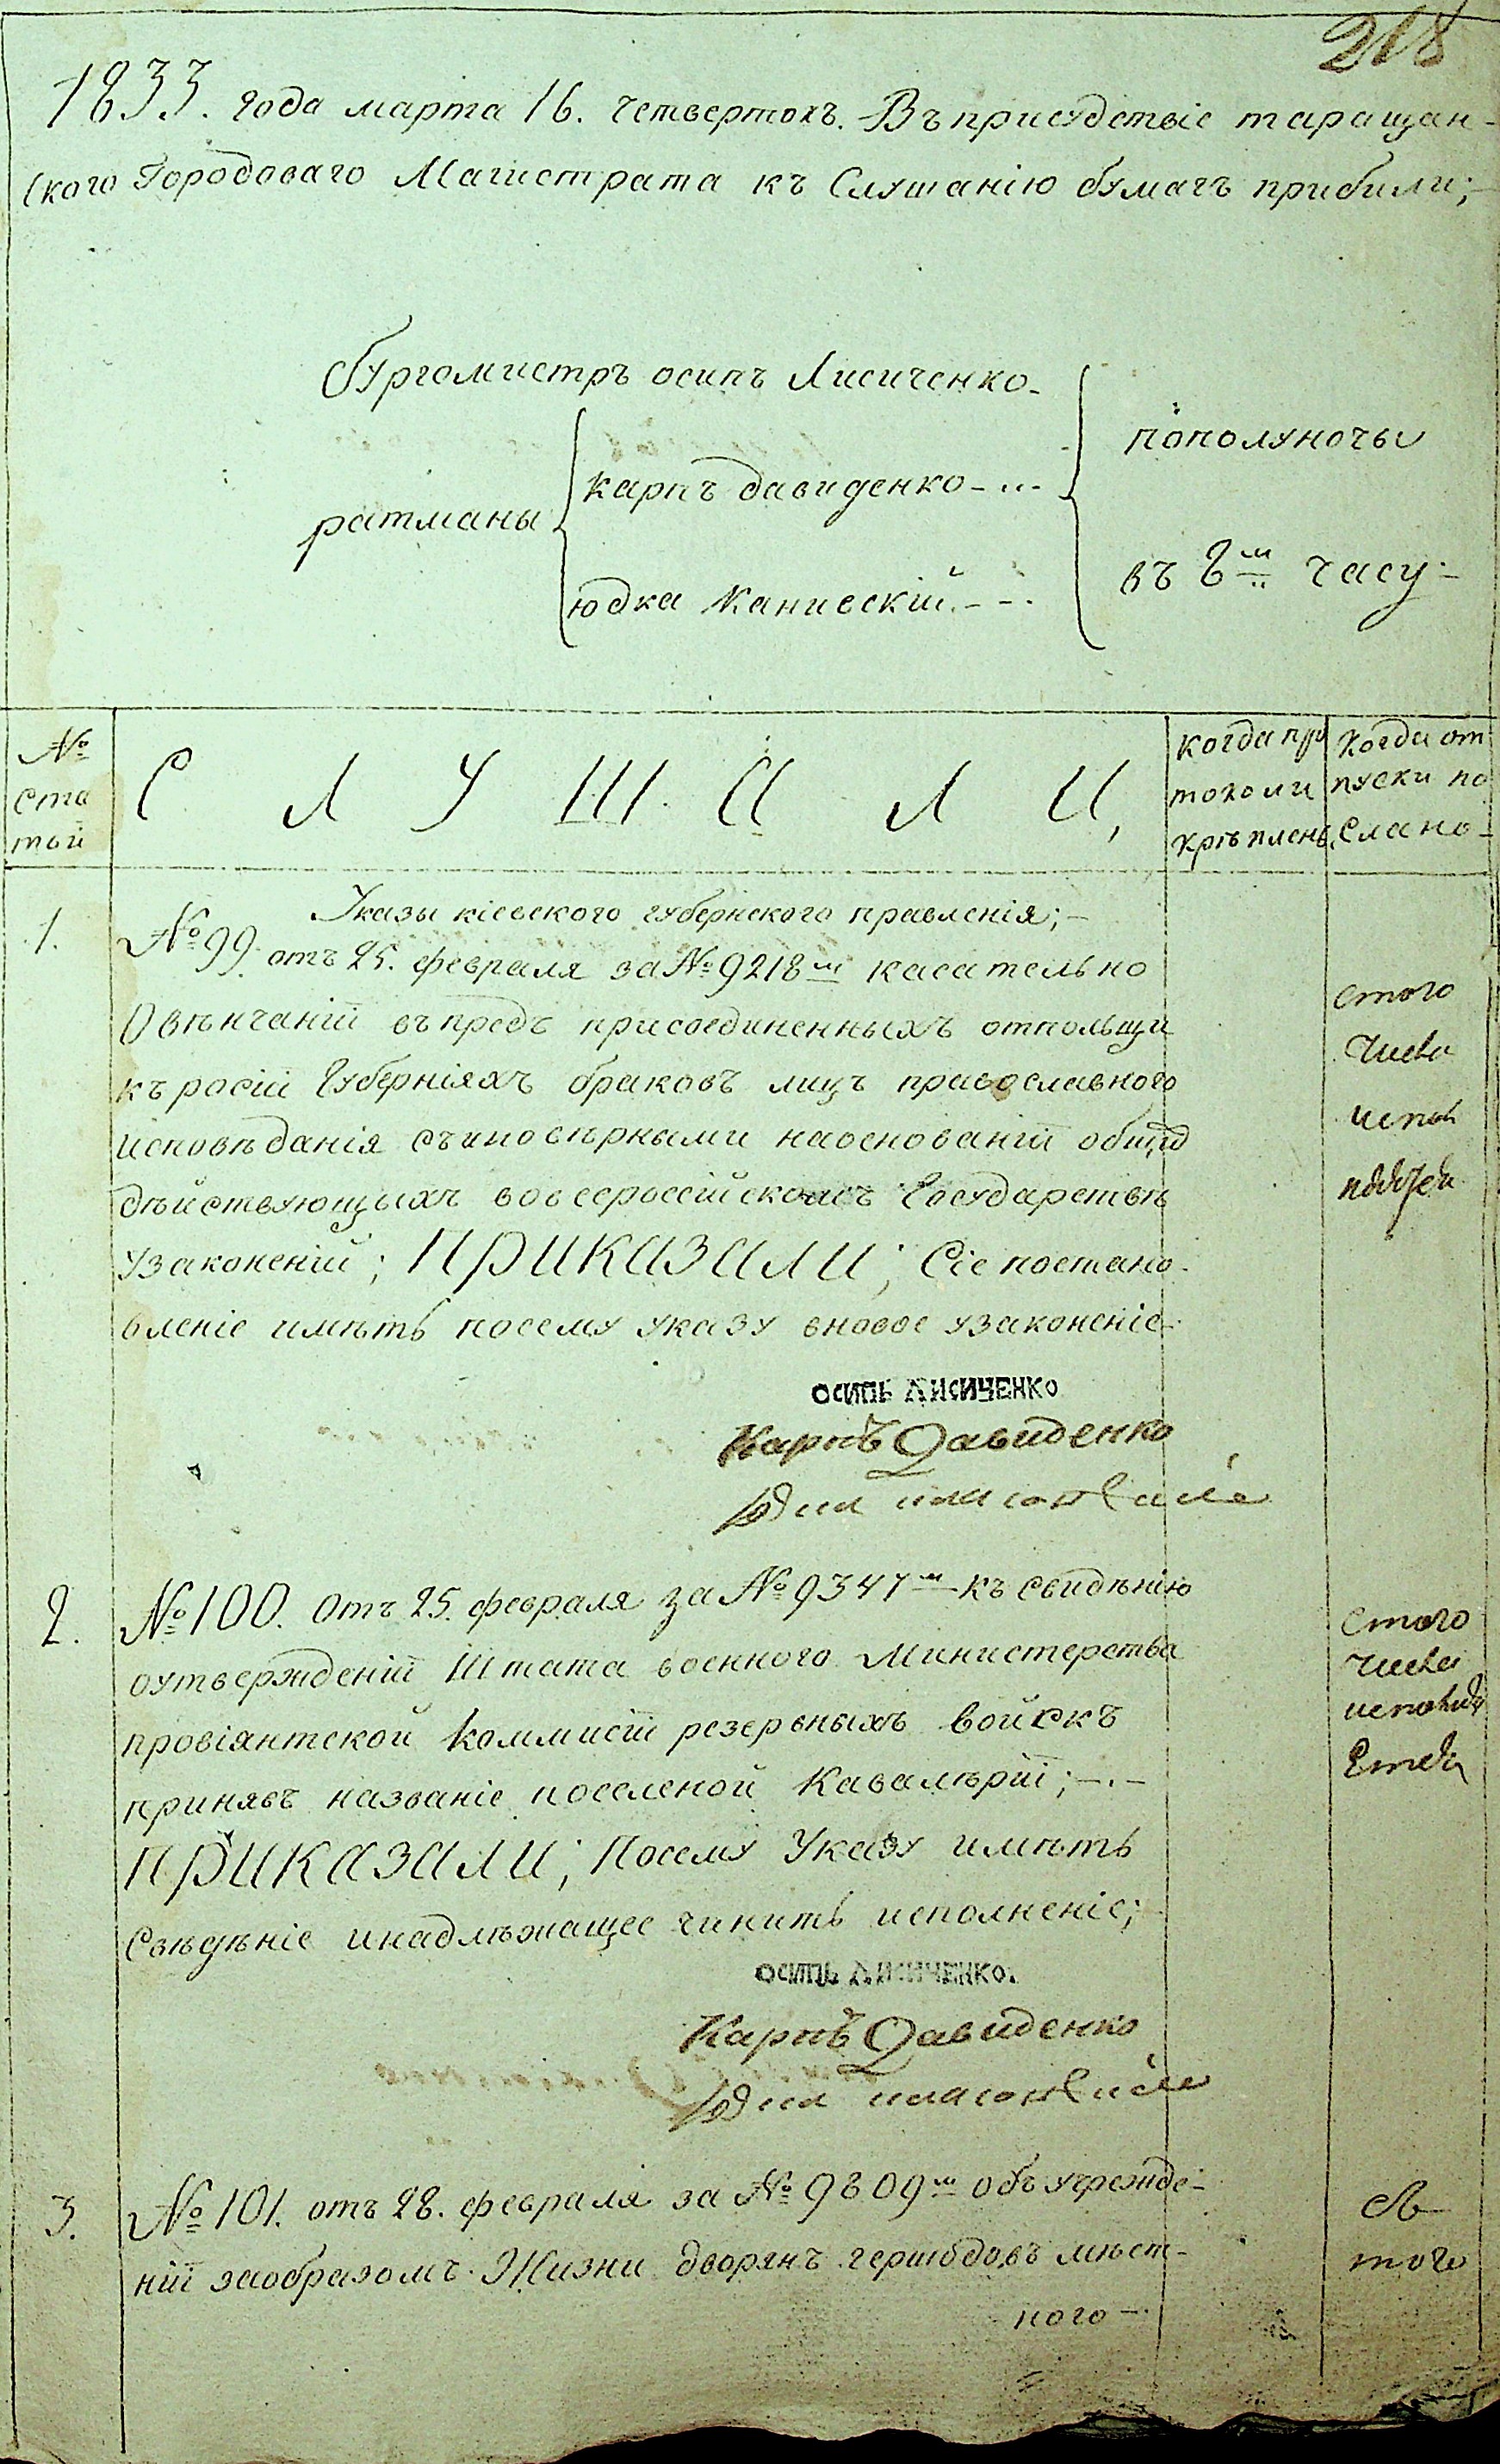 218
1833. года марта 16. четвертокъ. Въ присудствіе таращан-
ского Городоваго Магистрата къ Слушанію бумагъ прибили;
бургомистръ осипъ Лисиченко
ратманы
карпъ давиденко
юдка Каниевскій
пополуночы
въ 8м часу
№ ста тьй
С Л У Ш А Л И,
когда про токоли крѣплены
Когда от пуски по слано
Указы кіевского губернского правленія;
1.
№ 99. отъ 25. февраля за № 9218м касательно
О вѣнчаній въ предь присоединенныхъ отпольщи
къ росіи Губерніяхъ браковъ лицъ православного
исповѣданія съ иновѣрными наоснованій общид
дѣйствующыхъ вовсероссійскомъ Государствѣ
узаконеній; ПРИКАЗАЛИ; Сіе постано-
вленіе имѣть посему указу вновое узаконеніе
стого
числа
ОСИПЬ ЛИСИЧЕНКО
Карпъ Давиденко
2.
№ 100. Отъ 25. февраля за № 9347м къ свидѣнію
оутвержденій Штата военного Министерства
провіянтской Коммисіи резервныхъ войскъ
принявъ названіе поселеной Кавалѣріи;
ПРИКАЗАЛИ; Посему Указу имѣть
свѣдѣніе инадлѣжащее чинить исполненіе;
стого
числа
ОСИПЬ ЛИСИЧЕНКО.
Карпъ Давиденко
3.
№ 101. отъ 28. февраля за № 9809м объ учрежде-
ній заобразомъ Жизни дворянъ мѣст-
ного
того